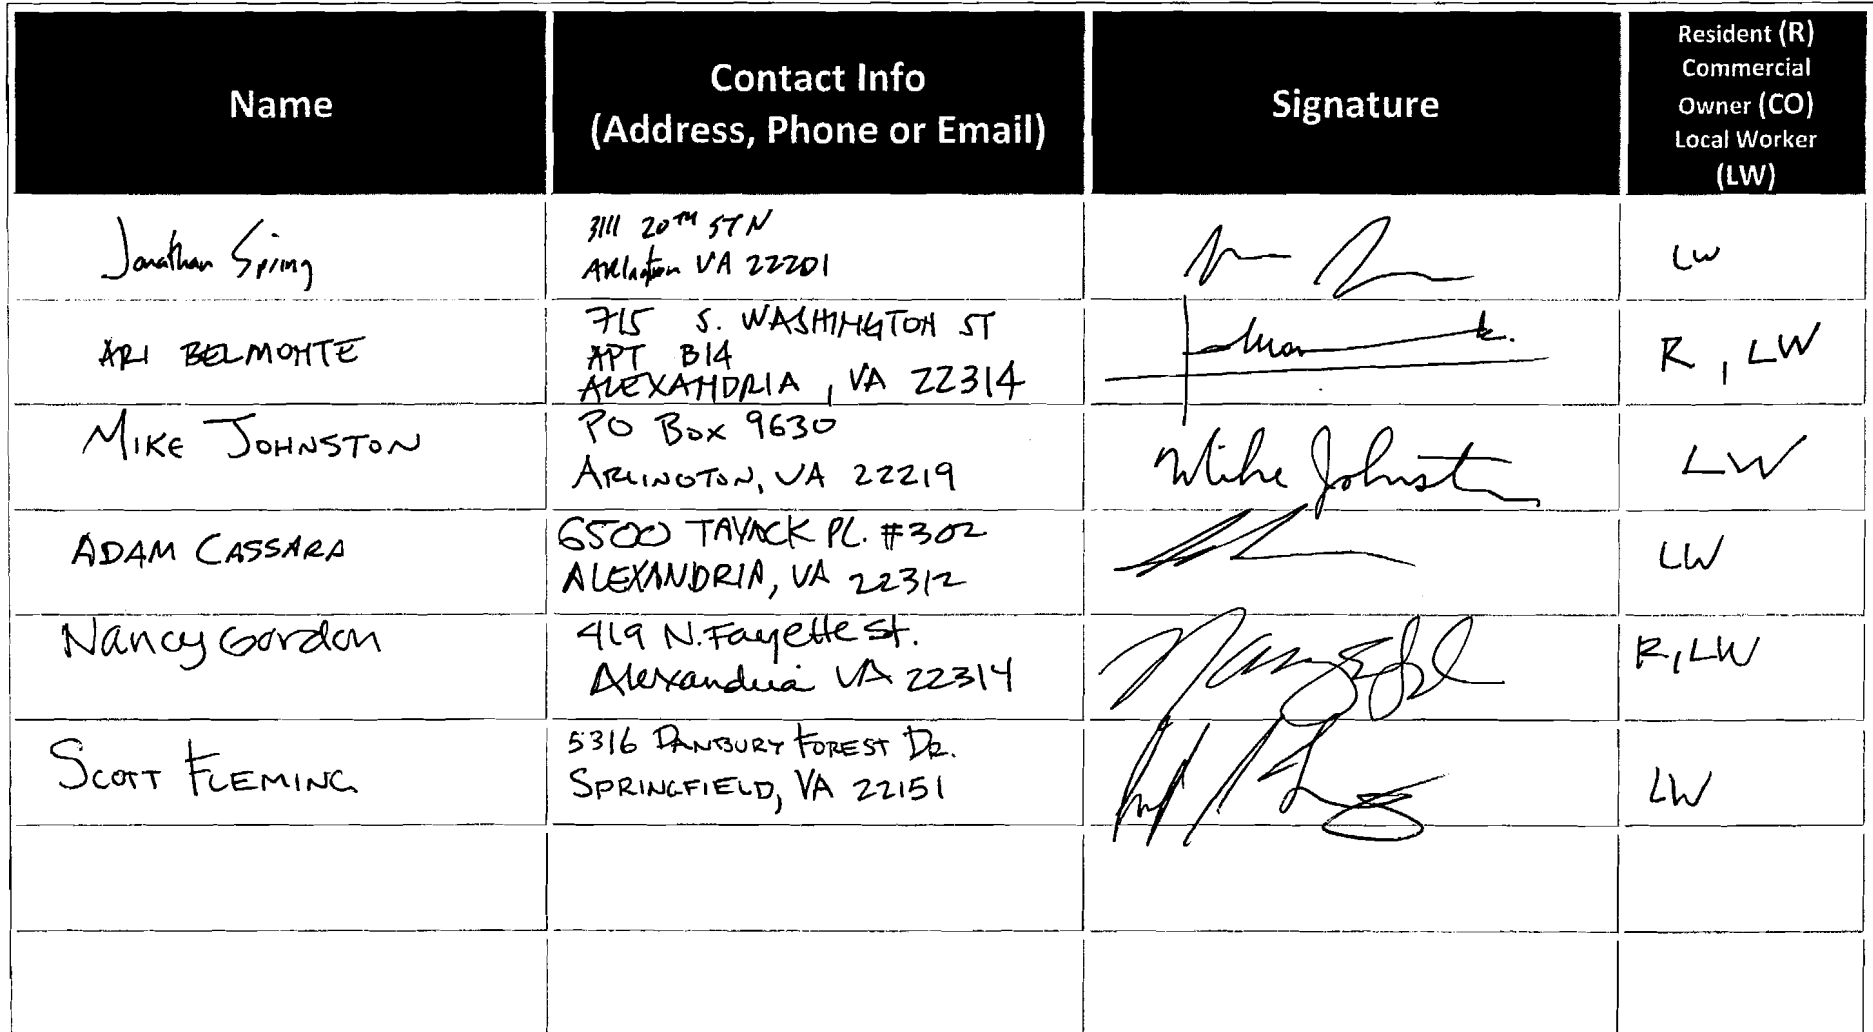 Name
Contact Info
(Address, Phone or Email)
Signature
Resident (R)
Commercial
Owner (CO)
Local Worker
(LW)
Jonathan Spring
3111 20TH ST N
Arlington VA 22201
LW
ARI BELMONTE
715 S. WASHINGTON ST
APT B14
ALEXANDRIA, VA 22314
R, LW
MIKE JOHNSTON
PO Box 9630
ARLINGTON, VA 22219
Mike Johnston
LW
ADAM CASSARA
6500 TAYACK PL. #302
ALEXANDRIA, VA 22312
LW
Nancy Gordon
419 N. Fayette St.
Alexandria VA 22314
R, LW
SCOTT FLEMING
5316 DANBURY FOREST DR.
SPRINGFIELD, VA 22151
LW